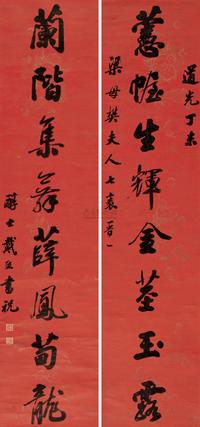 道光丁未
蕙幄生輝金莖玉露
梁母樊夫人七袠晉一
蘭階集舞薛鳳荀龍
醇士戴熙書祝